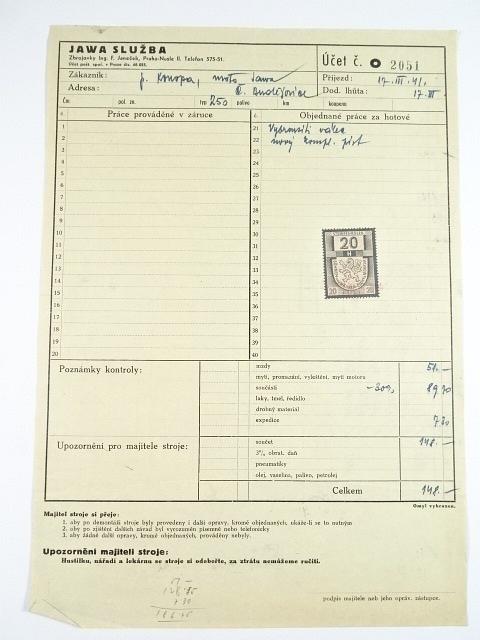 JAWA SLUŽBA
Zbrojovky Ing. F. Janeček, Praha-Nusle II. Telefon 575-51.
Účet č. 2051
Zákazník: p. Konopa, moto Jawa
Příjezd: 17. III. 41.
Adresa:
Dod. lhůta: 17. III
Čm. pol. zn. typ 250 palivo km kaucem
Práce prováděné v záruce
Objednané práce za hotové
1 21 Vybrousiti válec
2 22 nový kompl. píst
3 23
4 24
5 25
6 26
7 27
8 28
9 29
10 30
11 31
12 32
13 33
14 34
15 35
16 36
17 37
18 38
19 39
20 40
20
H
20 20
Poznámky kontroly:
mzdy 51.—
mytí, promazání, vyleštění, mytí motoru
součásti
laky, tmel, ředidlo
drobný materiál
expedice 7 30
Upozornění pro majitele stroje:
součet 148.—
3% obrat. daň
pneumatiky
olej, vaselina, palivo, petrolej
Celkem 148.—
Omyl vyhrazen.
Majitel stroje si přeje:
1. aby po demontáži stroje byly provedeny i další opravy, kromě objednaných, ukáže-li se to nutným
2. aby po zjištění dalších závad byl vyrozuměn písemně nebo telefonicky
3. aby žádné další opravy, kromě objednaných, prováděny nebyly.
Upozornění majiteli stroje:
Hustilku, nářadí a lekárnu se stroje si odeberte, za ztrátu nemůžeme ručiti.
podpis majitele neb jeho opráv. zástupce.